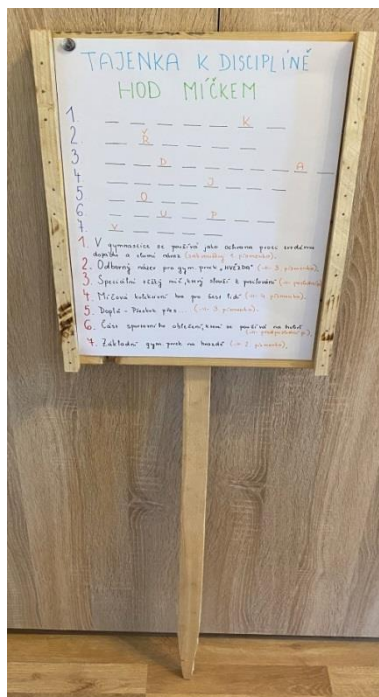 TAJENKA K DISCIPLÍNĚ
HOD MÍČKEM
1. _ _ _ _ _ _ K _ _
2. _ _ Ř _ _ _ _
3. _ _ _ D _ _ _ _ _ _ A _
4. _ _ _ _ _ J _ _
5. _ _ O _ _
6. _ _ _ U _ P _ _
7. V _ _ _ _ _
1. V gymnastice se používá jako ochrana proti
dopadu a tlumí náraz
2. Odborný název pro gym. prvek „HVĚZDA" (-n- 3. písmenko),
3. Speciální těžký míč, který slouží k posilování
4. Míčová kolektivní hra pro šest lidí (-n- 4. písmenko),
5. Doplň - Přeskok přes... (-n- 3. písmenko),
6. Část sportovního oblečení, která se používá na
7. Základní gym. prvek na hrazdě (-n- 1. písmenko),